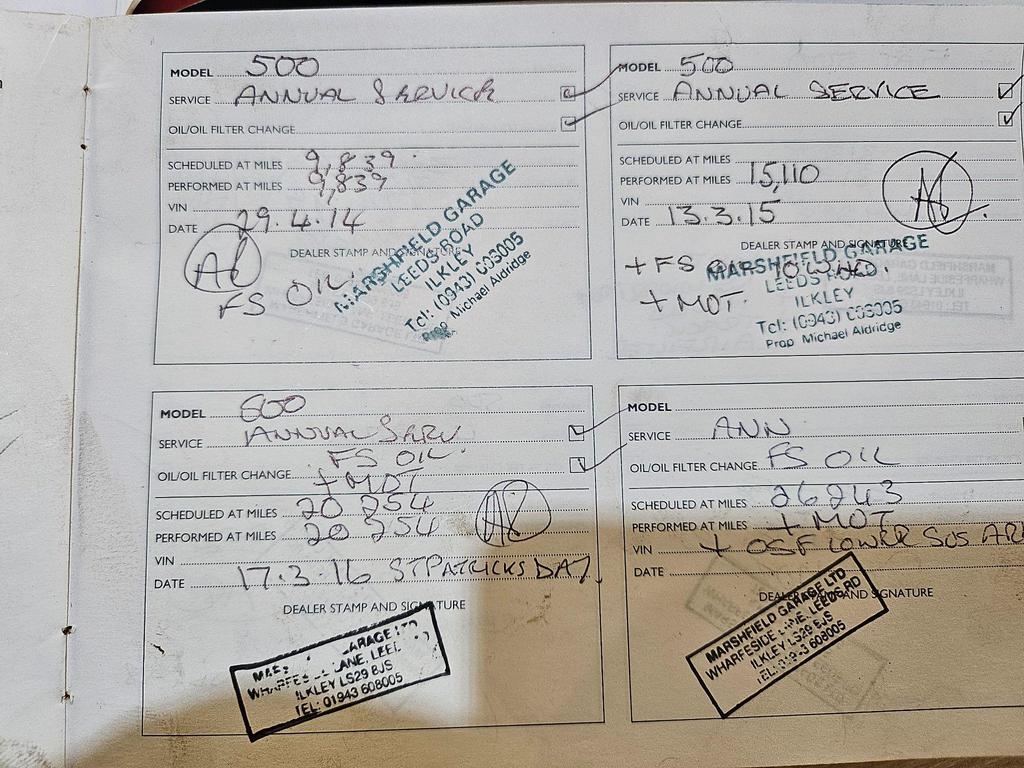 MODEL 500
SERVICE ANNUAL SERVICE
OIL/OIL FILTER CHANGE
SCHEDULED AT MILES 9,839
PERFORMED AT MILES 9,839
VIN
DATE 29.4.14
DEALER STAMP AND SIGNATURE
FS OIL
MARSHFIELD GARAGE
LEEDS ROAD
ILKLEY
Tel: (0943) 603005
Prop Michael Aldridge
MODEL 500
SERVICE ANNUAL SERVICE
OIL/OIL FILTER CHANGE
SCHEDULED AT MILES
PERFORMED AT MILES 15,110
VIN
DATE 13.3.15
DEALER STAMP AND SIGNATURE
+ FS OIL
+ MOT
MARSHFIELD GARAGE
LEEDS ROAD
ILKLEY
Tel: (0943) 603005
Prop Michael Aldridge
MODEL 500
SERVICE ANNUAL SERV
FS OIL
OIL/OIL FILTER CHANGE + MOT
SCHEDULED AT MILES 20 254
PERFORMED AT MILES 20 254
VIN
DATE 17.3.16 ST PATRICKS DAY
DEALER STAMP AND SIGNATURE
GARAGE LTD
WHARFESIDE LANE, LEEDS
ILKLEY LS29 8JS
TEL: 01943 608005
MODEL
SERVICE ANN
OIL/OIL FILTER CHANGE FS OIL
SCHEDULED AT MILES 26243
PERFORMED AT MILES + MOT
VIN + OSF LOWER SUS ARM
DATE
DEALER STAMP AND SIGNATURE
MARSHFIELD GARAGE LTD
WHARFESIDE LANE, LEEDS RD
ILKLEY LS29 8JS
TEL: 01943 608005